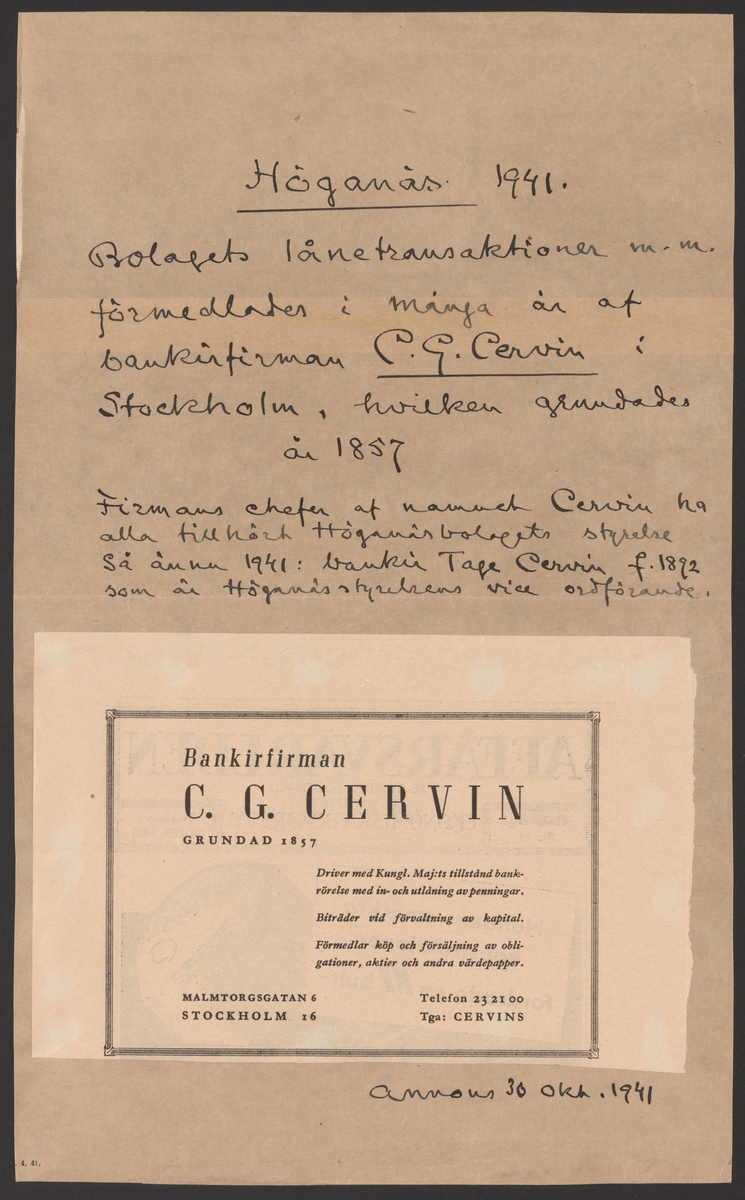 Höganäs 1941.
Bolagets lånetransaktioner m.m.
förmedlades i många år af
bankirfirman C. G. Cervin i
Stockholm, hvilken grundades
år 1857
Firmans chefer af namnet Cervin ha
alla tillhört Höganäsbolagets styrelse
Så ännu 1941: bankir Tage Cervin f. 1892
som är Höganässtyrelsens vice ordförande.
Bankirfirman
C. G. CERVIN
GRUNDAD 1857
Driver med Kungl. Maj:ts tillstånd bank-
rörelse med in- och utlåning av penningar.
Biträder vid förvaltning av kapital.
Förmedlar köp och försäljning av obli-
gationer, aktier och andra värdepapper.
MALMTORGSGATAN 6 Telefon 23 21 00
STOCKHOLM 16 Tga: CERVINS
Annons 30 Okt. 1941
4. 41.